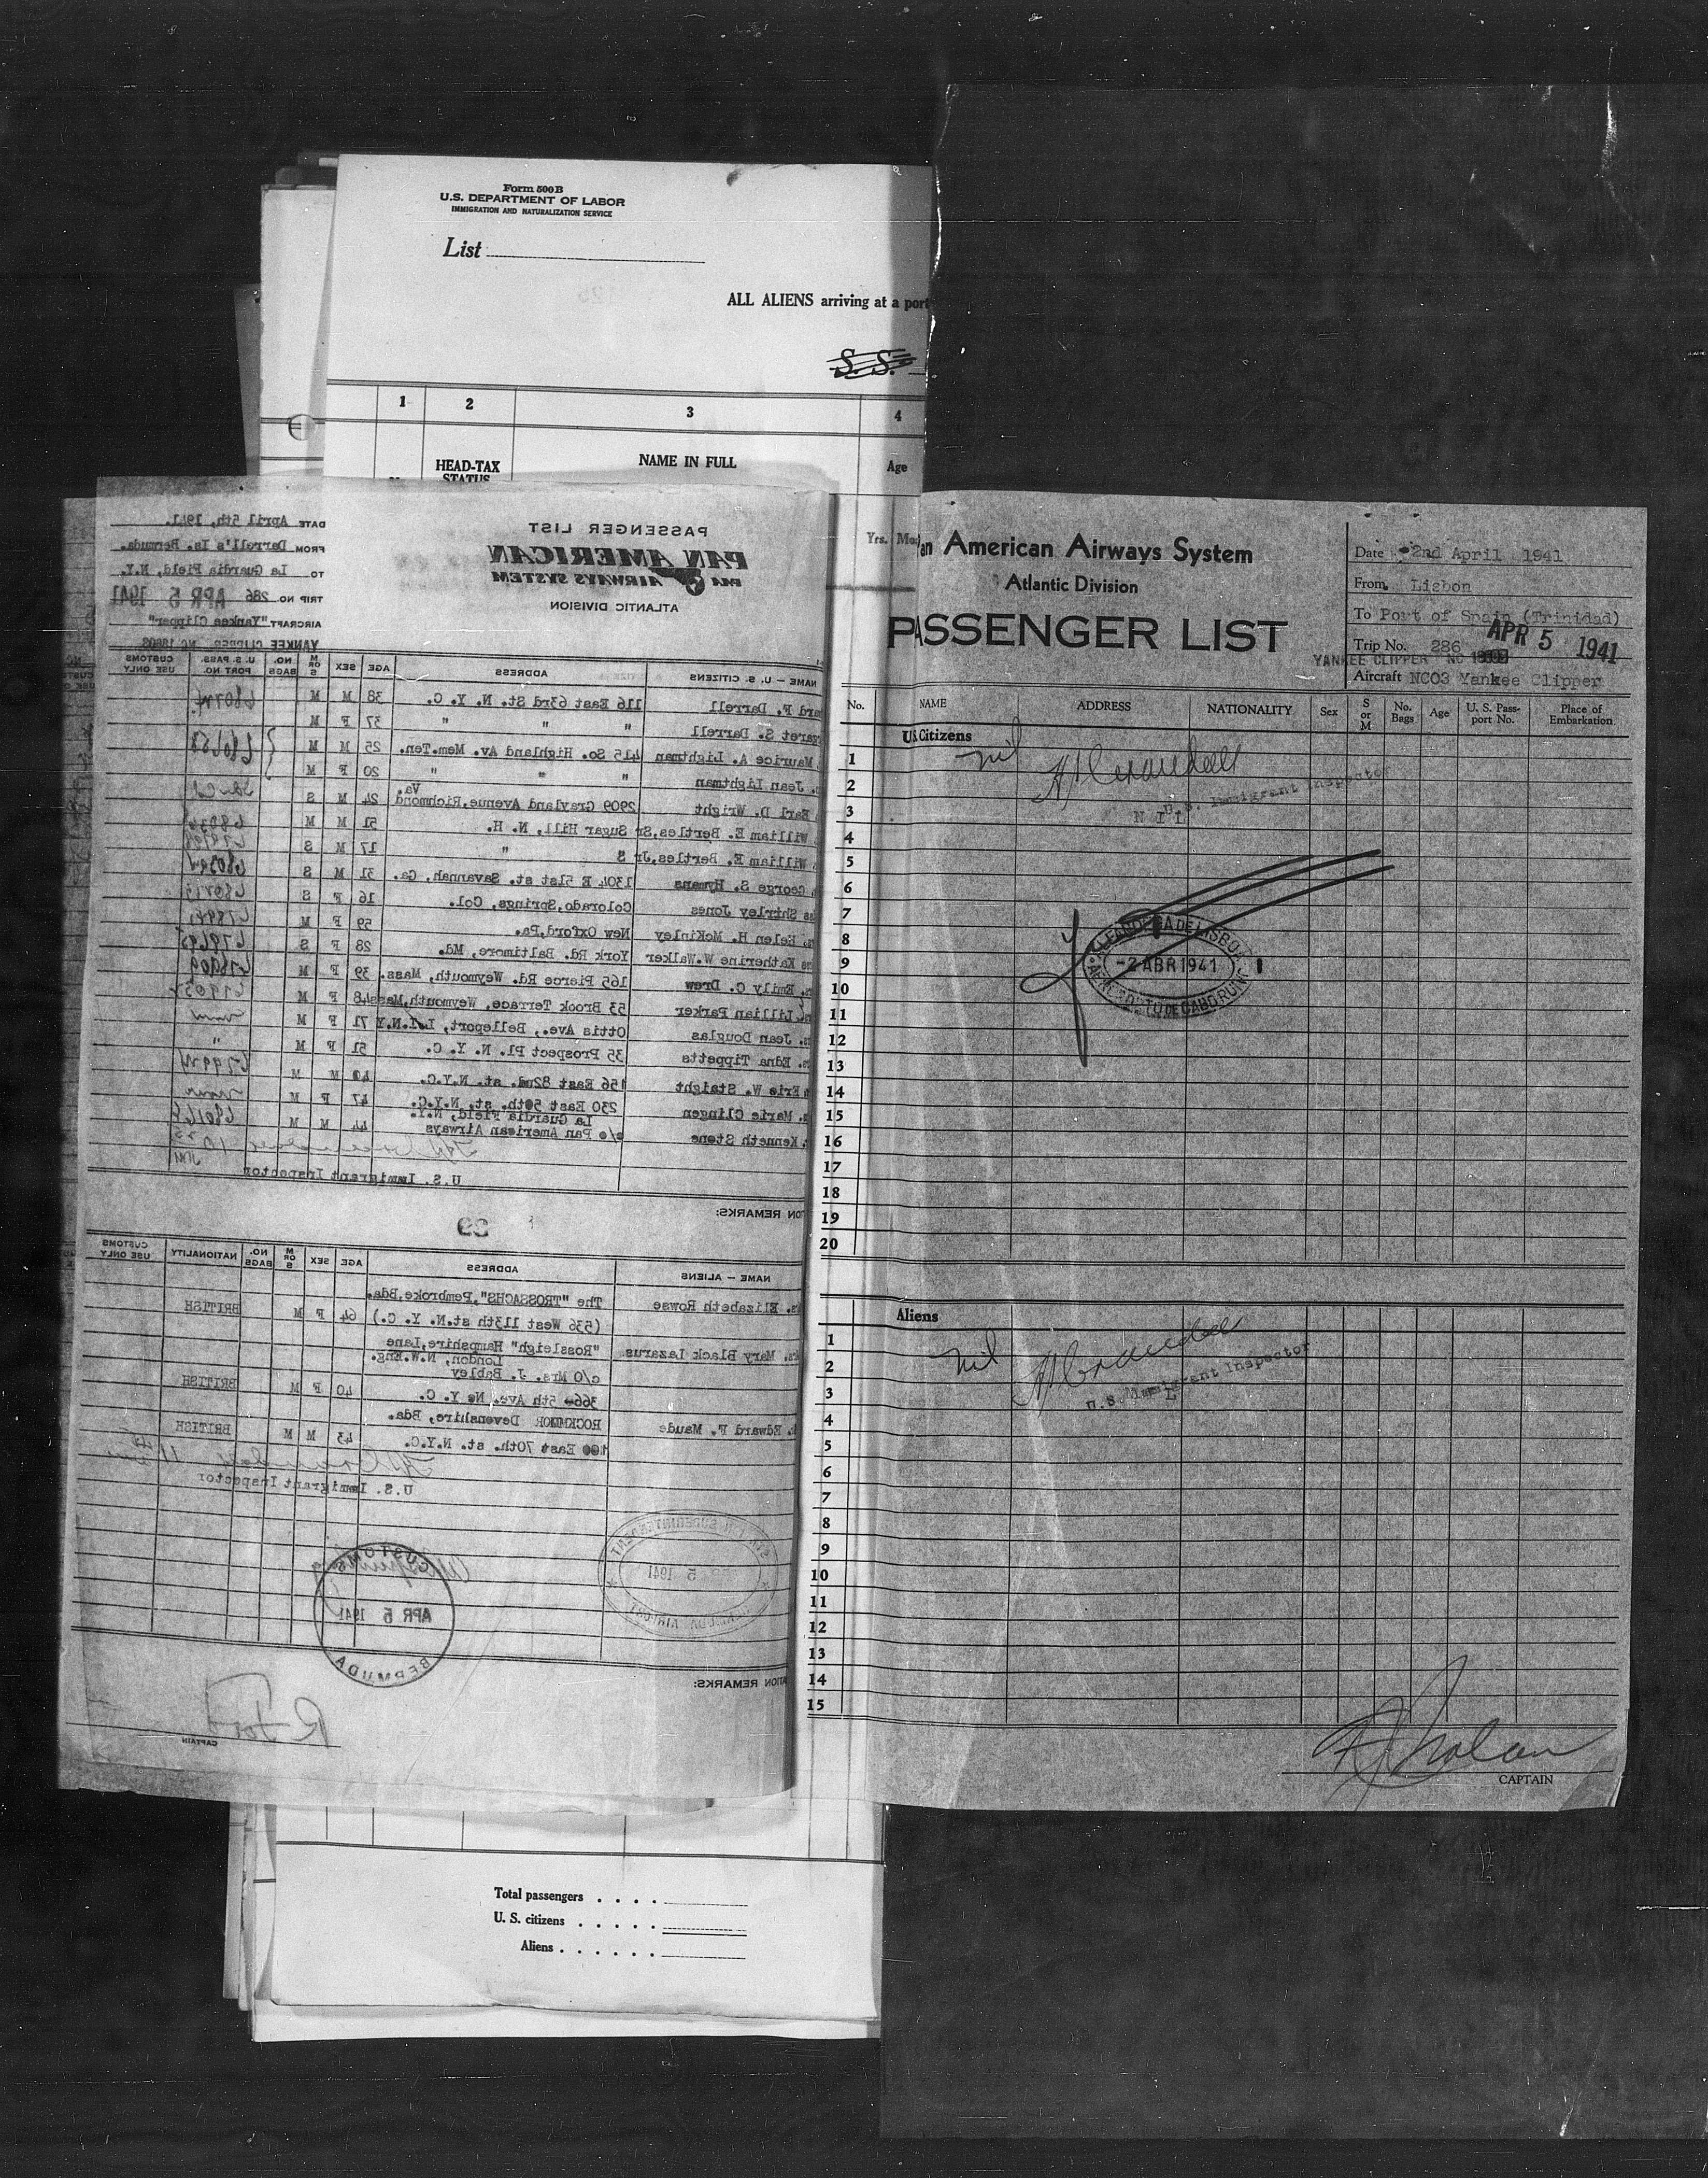 Form 500 B
U.S. DEPARTMENT OF LABOR
IMMIGRATION AND NATURALIZATION SERVICE
List
ALL ALIENS arriving at a port
S. S.
1 2 3 4
HEAD-TAX STATUS NAME IN FULL Age
Yrs. Mo.
PASSENGER LIST
PAN AMERICAN
PAA AIRWAYS SYSTEM
ATLANTIC DIVISION
DATE April 5th, 1941.
FROM Darrell's Is. Bermuda.
TO La Guardia Field, N.Y.
TRIP NO. 286 APR 5 1941
AIRCRAFT "Yankee Clipper"
YANKEE CLIPPER NC 18603
NAME — U. S. CITIZENS ADDRESS AGE SEX M OR S NO. BAGS U. S. PASS-PORT NO. CUSTOMS USE ONLY
ard F. Darrell 116 East 63rd St. N. Y. C. 38 M M
garet S. Darrell " " " 37 F M
Maurice A. Lightman 415 So. Highland Av. Mem.Ten. 25 M M
. Jean Lightman " " " 20 F M
Earl D. Wright 2909 Grayland Avenue, Richmond Va. 24 M S
William E. Bertles, Sr Sugar Hill, N. H. 51 M M
William E. Bertles, Jr " 17 M S
George S. Hymans 1304 E 51st st. Savannah, Ga. 31 M S
ss Shirley Jones Colorado, Springs, Col. 16 F S
s. Helen H. McKinley New Oxford, Pa. 59 F M
ss Katherine W. Walker York Rd. Baltimore, Md. 28 F S
. Emily C. Drew 165 Pierce Rd. Weymouth, Mass. 39 F M
Lillian Parker 53 Brook Terrace, Weymouth, Mass 48 F M
s. Jean Douglas Ottis Ave., Bellport, L.I.N.Y 71 F M
s. Edna Tippetts 35 Prospect Pl. N. Y. C. 51 F M
Eric W. Staight 156 East 82nd. st. N.Y.C. 40 M M
. Marie Clingen 230 East 50th. st. N.Y.C. 47 F M
Kenneth Stone c/o Pan American Airways La Guardia Field, N.Y. 44 M M
U.S. Immigrant Inspector
ON REMARKS:
29
NAME — ALIENS ADDRESS AGE SEX M OR S NO. BAGS NATIONALITY CUSTOMS USE ONLY
s. Elizabeth Rowse The "TROSSACHS", Pembroke, Bda.
(536 West 113th st. N. Y. C.) 64 F M BRITISH
rs. Mary Black Lazarus "Rossleigh" Hampshire, Lane
London, N.W. Eng.
c/o Mrs. J. Babley
366 5th Ave. N. Y. C. 40 F M BRITISH
. Edward F. Maude Devonshire, Bda.
100 East 70th. st. N.Y.C. 43 M M BRITISH
U.S. Immigrant Inspector
CUSTOMS
APR 5 1941
BERMUDA
5 1941
ATION REMARKS:
CAPTAIN
Total passengers . . . .
U. S. citizens . . . . .
Aliens . . . . . .
an American Airways System
Atlantic Division
PASSENGER LIST
Date 2nd April 1941
From Lisbon
To Port of Spain (Trinidad)
Trip No. 286 APR 5 1941
YANKEE CLIPPER NC
Aircraft NC03 Yankee Clipper
No. NAME ADDRESS NATIONALITY Sex S or M No. Bags Age U. S. Pass-port No. Place of Embarkation
U.S. Citizens
nil
U.S. Immigrant Inspector
N I L
1
2
3
4
5
6
7
8
9
10
11
12
13
14
15
16
17
18
19
20
-2 ABR 1941
Aliens
nil
U.S. Immigrant Inspector
1
2
3
4
5
6
7
8
9
10
11
12
13
14
15
CAPTAIN